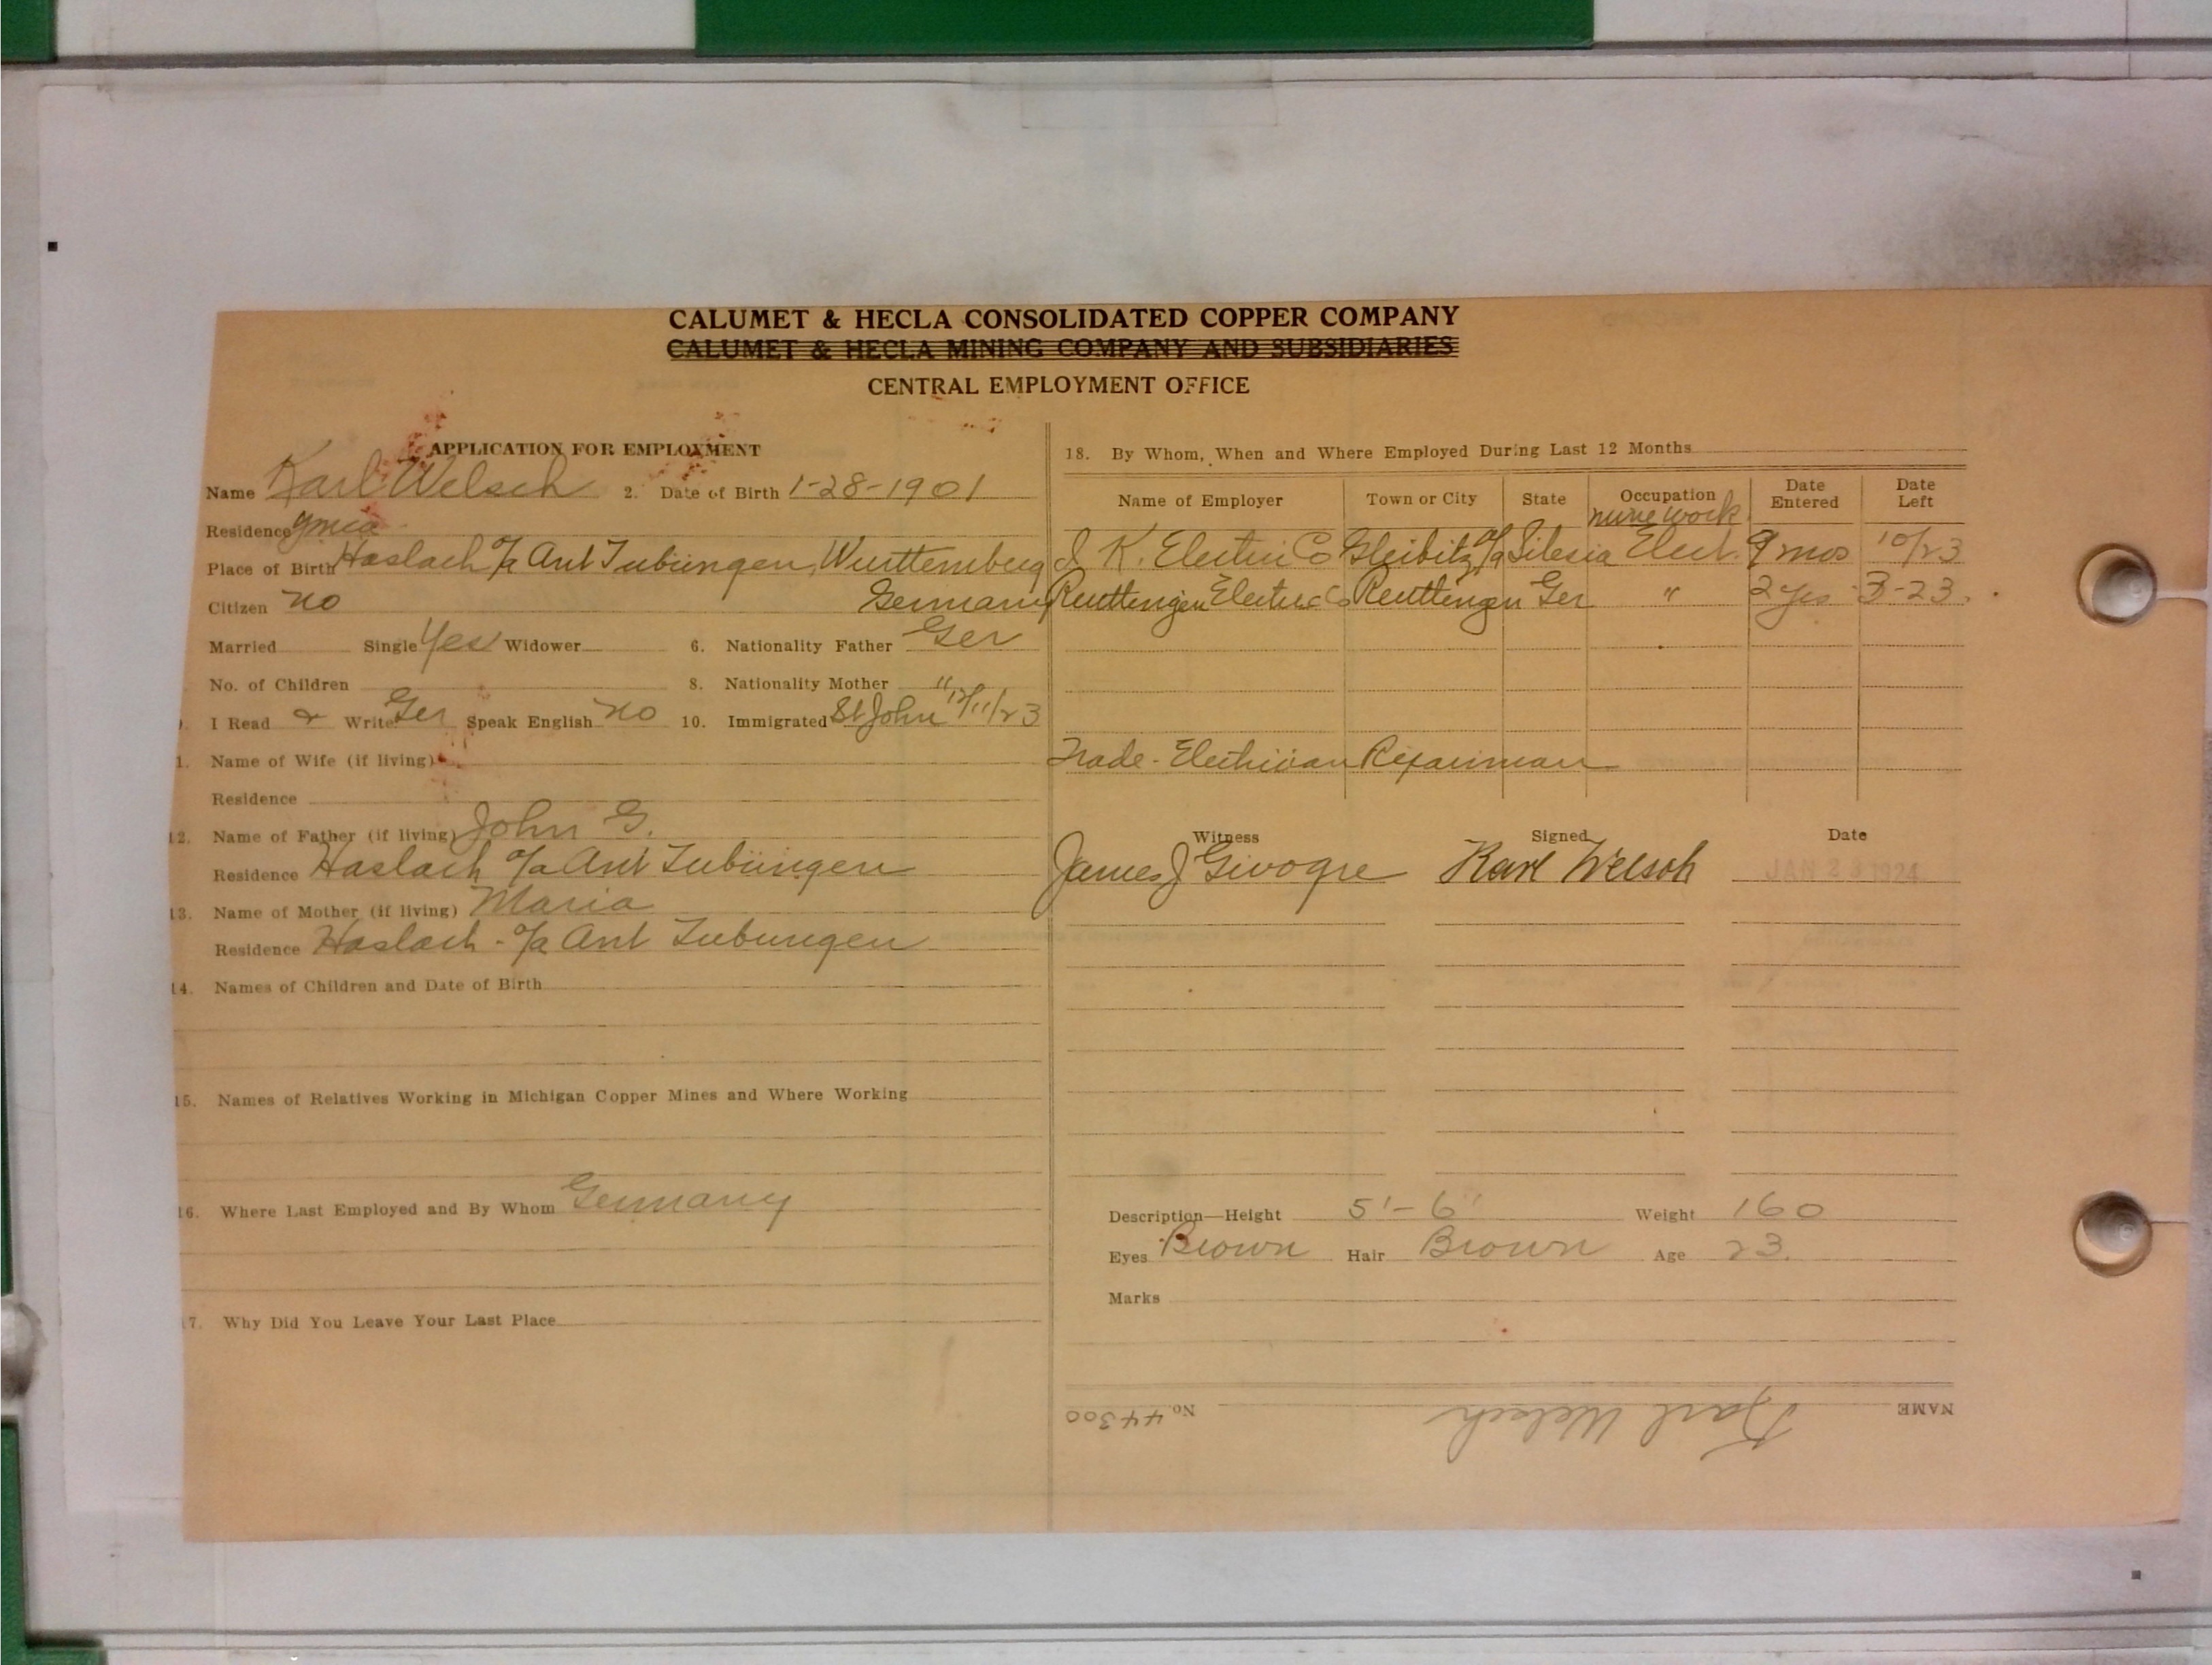 CALUMET & HECLA CONSOLIDATED COPPER COMPANY
CALUMET & HECLA MINING COMPANY AND SUBSIDIARIES
CENTRAL EMPLOYMENT OFFICE
APPLICATION FOR EMPLOYMENT
Name Karl Welsch 2. Date of Birth 1-28-1901
Residence ymca
Place of Birth Haslach o/a Ant Tubüngen, Wurttemberg
Citizen no Germany
Married Single Yes Widower 6. Nationality Father Ger
No. of Children 8. Nationality Mother "
I Read & Write Ger Speak English no 10. Immigrated St John 12/11/23
1. Name of Wife (if living)
Residence
12. Name of Father (if living) John G.
Residence Haslach o/a Ant Tubüngen
13. Name of Mother (if living) Maria
Residence Haslach - o/a Ant Tubungen
14. Names of Children and Date of Birth
15. Names of Relatives Working in Michigan Copper Mines and Where Working
16. Where Last Employed and By Whom Germany
17. Why Did You Leave Your Last Place
18. By Whom, When and Where Employed During Last 12 Months
Name of Employer Town or City State Occupation Date Entered Date Left
mine work
K. Electric Co Gleibitz o/a Silesia Elect. 9 mos 10/23
Reuttengen Electric Co Reuttengen Ger " 2 yrs 3-23.
Trade - Electrician Repairman
Witness Signed Date
James J Givogre Karl Welsch JAN 23 1924
Description—Height 5'-6" Weight 160
Eyes Brown Hair Brown Age 23.
Marks
NAME Karl Welsch No. 44300